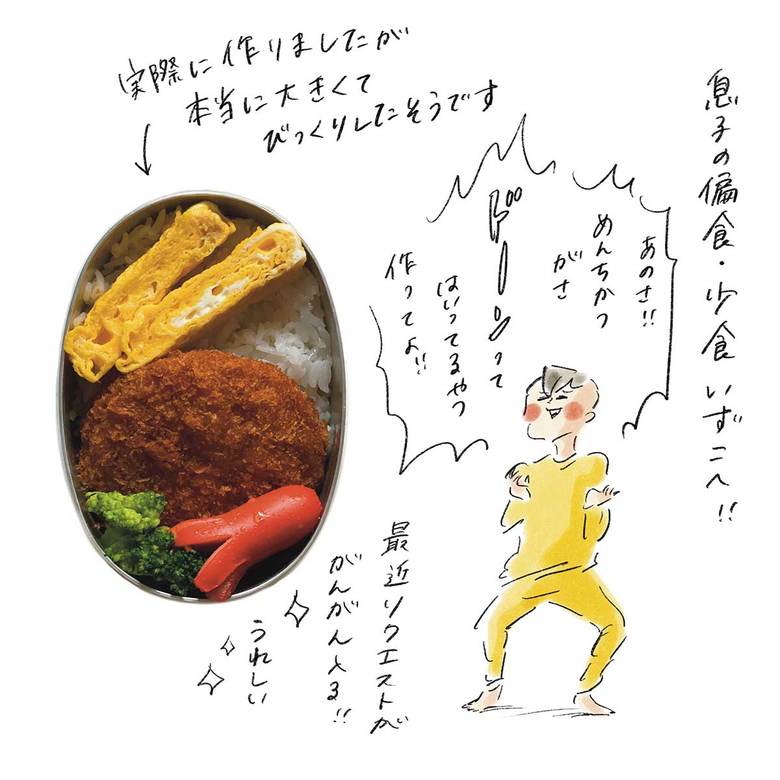 息子の偏食・少食いずこへ!!
あのさ!!
めんちかつ
がさ
ドーンって
はいってるやつ
作ってよ!!
実際に作りましたが
本当に大きくて
びっくりしたそうです
最近リクエストが
がんがんくる!!
うれしい